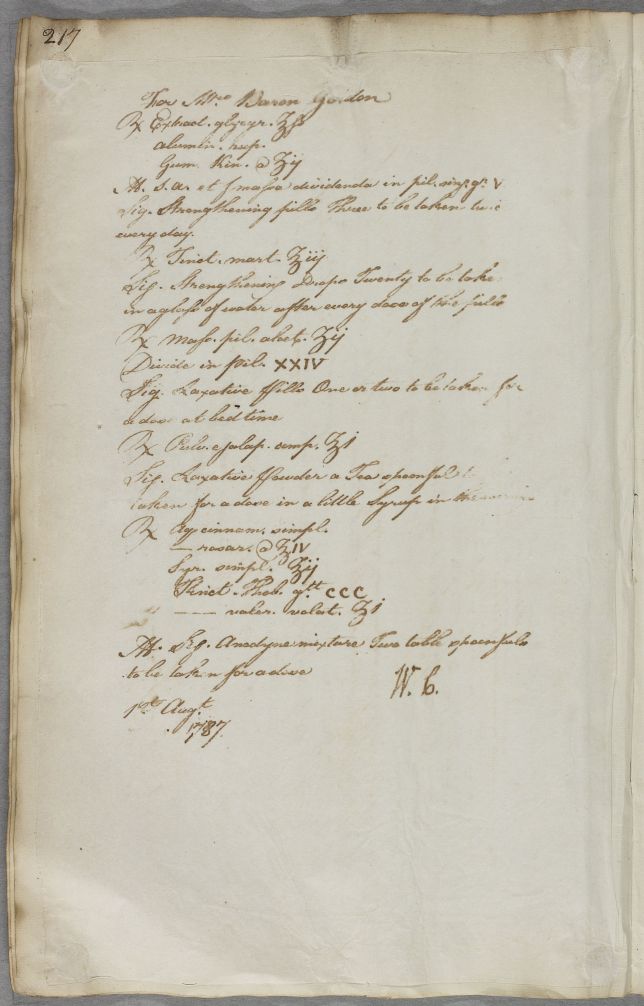 217
For Mrs Baron Gordon
℞ Extract. glycyr. ʒſs
alumin. rup.
Gum. Kin. @ ʒij
M. s. a. et f. massa dividenda in pil. sing. gr. V
Sig. Strengthening pills Three to be taken
every day.
℞ Tinct. mart. ʒiij
Sig. Strengthening Drops Twenty to be take
in a glass of water after every dose of the pills
℞ Mass. pil. aloet. ʒij
Divide in pil. XXIV
Sig. Laxative Pills One or two to be taken for
a dose at bed time
℞ Pulv. e jalap. comp. ℥i
Sig. Laxative Powder a Tea spoonful
taken for a dose in a little Syrup in the
℞ Aq. cinnam. simpl.
— rosar. @ ℥IV
Syr. simpl. ℥ij
Tinct. Theb. gtt CCC
— — valer. volat. ℥i
M. Sig. Anodyne mixture Two table spoonfuls
to be taken for a dose
W. C.
1st Augt.
1787.